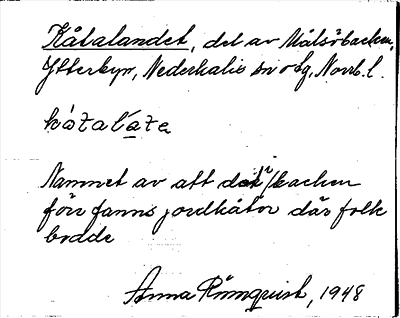 Kåtalandet, del av Målsöbacken,
Ytterbyn, Nederkalix sn o tg, Norrb. l.
kò̀tal`ate
Namnet av att där i backen
förr fanns jordkåtor där folk
bodde
Anna Rönnquist, 1948